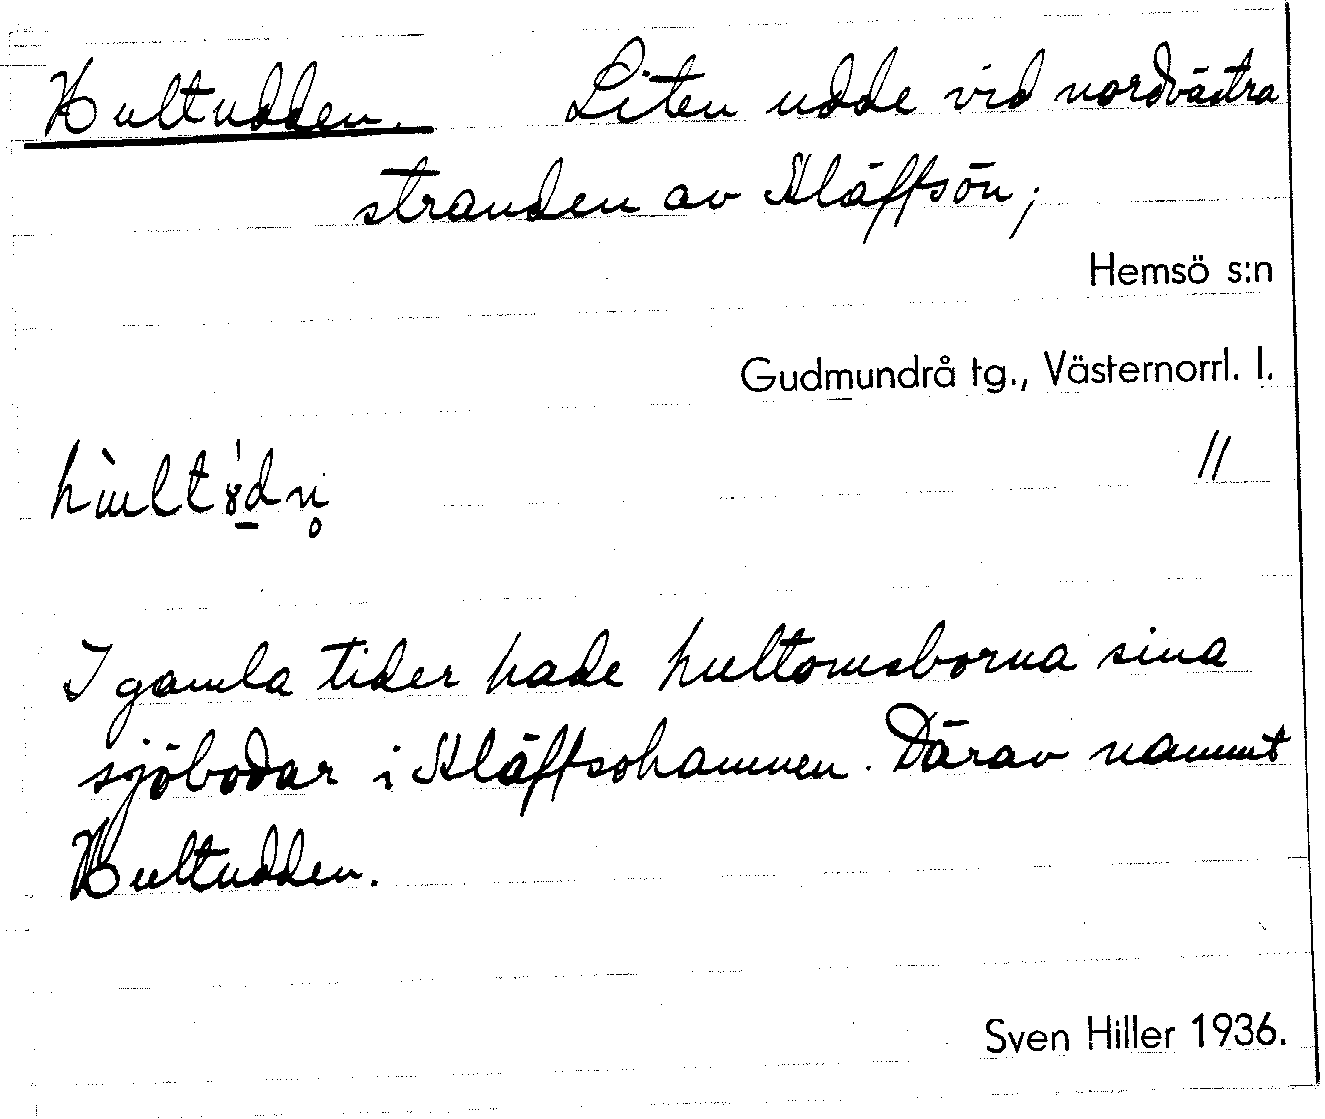 Hultudden. Liten udde vid nordvästra
stranden av Kläffsön;
Hemsö s:n
Gudmundrå tg., Västernorrl. l.
//
I gamla tider hade hultomsborna sina
sjöbodar i Kläffsöhamnen. Därav namnet
Hultudden.
Sven Hiller 1936.